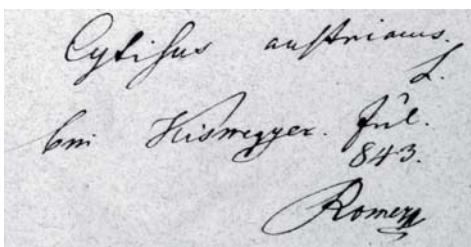 Cytisus austriacus.
L.
bei Kismegyer. Jul.
843.
Romer